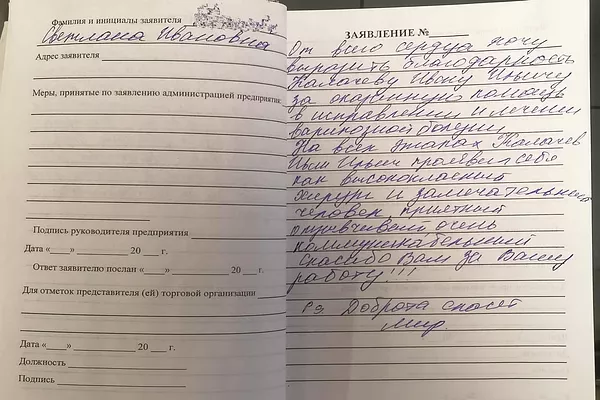 Фамилия и инициалы заявителя
Светлана Ивановна
Адрес заявителя
Меры, принятые по заявлению администрацией предприятия
Подпись руководителя предприятия
Дата «___» ________ 20 ___ г.
Ответ заявителю послан «___» ________ 20 ___ г.
Для отметок представителя (ей) торговой организации
Дата «___» ________ 20 ___ г.
Должность
Подпись
ЗАЯВЛЕНИЕ №
От всего сердца хочу
выразить благодарность
Калачеву Ивану Ильичу
за оказанную помощь
в исправлении и лечении
варикозной болезни
На всех этапах Калачев
Иван Ильич проявил себя
как высококласный
хирург и замечательный
человек, приятный
отзывчивый очень
коммуникабельный
Спасибо Вам за Вашу
работу!!!
Доброта спасет
мир